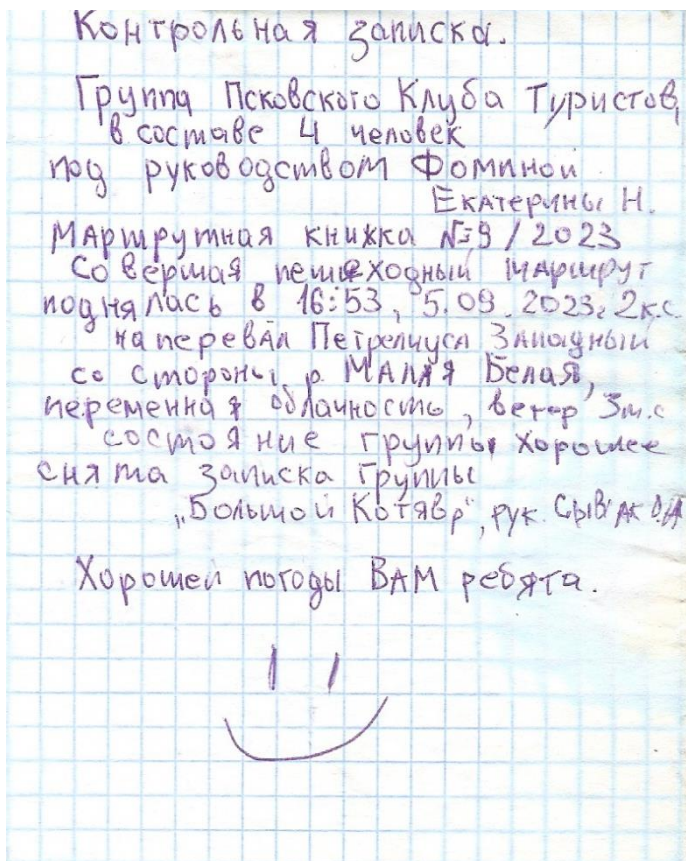 Контрольная записка.
Группа Псковского Клуба Туристов,
в составе 4 человек
под руководством Фоминой
Екатерины Н.
Маршрутная книжка №9/2023
Совершая пешеходный маршрут
поднялась в 16:53, 5.09.2023г. 2к.с.
на перевал Петрелиуса Западный
со стороны р. Малая Белая,
переменная облачность, ветер 3м.с
состояние группы хорошее
снята записка группы
„Большой Котявр", рук.
Хорошей погоды ВАМ ребята.